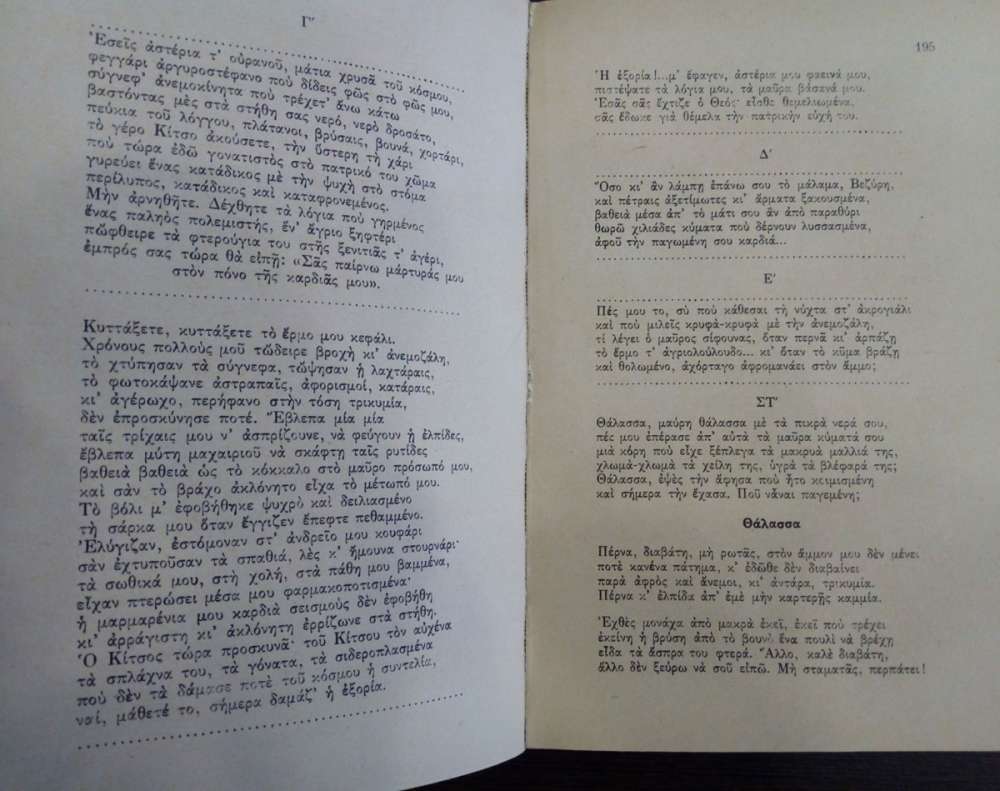 Γ΄
Ἐσεῖς ἀστέρια τ' οὐρανοῦ, μάτια χρυσᾶ τοῦ κόσμου,
φεγγάρι ἀργυροστέφανο ποὺ δίδεις φῶς στὸ φῶς μου,
σύγνεφ' ἀνεμοκίνητα ποὺ τρέχετ' ἄνω κάτω
βαστόντας μὲς στὰ στήθη σας νερό, νερὸ δροσάτο,
πεύκια τοῦ λόγγου, πλάτανοι, βρύσαις, βουνά, χορτάρι,
τὸ γέρο Κίτσο ἀκούσετε, τὴν ὕστερη τὴ χάρι
ποὺ τώρα ἐδῶ γονατιστὸς στὸ πατρικό του χῶμα
γυρεύει ἕνας κατάδικος μὲ τὴν ψυχὴ στὸ στόμα
περίλυπος, κατάδικος καὶ καταφρονεμένος.
Μὴν ἀρνηθῆτε. Δέχθητε τὰ λόγια ποὺ γηρμένος
ἕνας παληὸς πολεμιστής, ἕν' ἄγριο ξηφτέρι
πὤφθειρε τὰ φτερούγια του στῆς ξενιτιᾶς τ' ἀγέρι,
ἐμπρός σας τώρα θὰ εἰπῇ: «Σᾶς παίρνω μάρτυράς μου
στὸν πόνο τῆς καρδιᾶς μου».
Κυττάξετε, κυττάξετε τὸ ἔρμο μου κεφάλι.
Χρόνους πολλοὺς μοῦ τὤδειρε βροχὴ κι' ἀνεμοζάλη,
τὸ χτύπησαν τὰ σύγνεφα, τὤψησαν ἡ λαχτάραις,
τὸ φωτοκάψανε ἀστραπαῖς, ἀφορισμοί, κατάραις,
κι' ἀγέρωχο, περήφανο στὴν τόση τρικυμία,
δὲν ἐπροσκύνησε ποτέ. Ἔβλεπα μία μία
ταῖς τρίχαις μου ν' ἀσπρίζουνε, νὰ φεύγουν ἡ ἐλπίδες,
ἔβλεπα μύτη μαχαιριοῦ νὰ σκάφτῃ ταῖς ρυτίδες
βαθειὰ βαθειὰ ὡς τὸ κόκκαλο στὸ μαῦρο πρόσωπό μου,
καὶ σὰν τὸ βράχο ἀκλόνητο εἶχα τὸ μέτωπό μου.
Τὸ βόλι μ' ἐφοβήθηκε ψυχρὸ καὶ δειλιασμένο
τὴ σάρκα μου ὅταν ἔγγιζεν ἔπεφτε πεθαμμένο.
Ἐλύγιζαν, ἐστόμοναν στ' ἀνδρεῖο μου κουφάρι
σὰν ἐχτυποῦσαν τὰ σπαθιά, λὲς κ' ἤμουνα στουρνάρι·
τὰ σωθικά μου, στὴ χολή, στὰ πάθη μου βαμμένα,
εἶχαν πτερώσει μέσα μου φαρμακοποτισμένα·
ἡ μαρμαρένια μου καρδιὰ σεισμοὺς δὲν ἐφοβήθη
κι' ἀρράγιστη κι' ἀκλόνητη ἐρρίζωνε στὰ στήθη.
Ὁ Κίτσος τώρα προσκυνᾶ· τοῦ Κίτσου τὸν αὐχένα
τὰ σπλάχνα του, τὰ γόνατα, τὰ σιδεροπλασμένα
ποὺ δὲν τὰ δάμασε ποτὲ τοῦ κόσμου ἡ συντελία,
ναί, μάθετέ το, σήμερα δαμάζ' ἡ ἐξορία.
195
Ἡ ἐξορία!...μ' ἔφαγεν, ἀστέρια μου φαεινά μου,
πιστέψατε τὰ λόγια μου, τὰ μαῦρα βάσανά μου.
Ἐσᾶς σᾶς ἔχτιζε ὁ Θεός· εἶσθε θεμελιωμένα,
σᾶς ἔδωκε γιὰ θέμελα τὴν πατρικὴν εὐχή του.
Δ΄
Ὅσο κι' ἂν λάμπῃ ἐπάνω σου τὸ μάλαμα, Βεζύρη,
καὶ πέτραις ἀξετίμωτες κι' ἄρματα ξακουσμένα,
βαθειὰ μέσα ἀπ' τὸ μάτι σου ἂν ἀπὸ παραθύρι
θωρῶ χιλιάδες κύματα ποὺ δέρνουν λυσσασμένα,
ἀφοῦ τὴν παγωμένη σου καρδιά...
Ε΄
Πές μου το, σὺ ποὺ κάθεσαι τὴ νύχτα στ' ἀκρογιάλι
καὶ ποὺ μιλεῖς κρυφὰ-κρυφὰ μὲ τὴν ἀνεμοζάλη,
τί λέγει ὁ μαῦρος σίφουνας, ὅταν περνᾷ κι' ἁρπάζῃ
τὸ ἔρμο τ' ἀγριολούλουδο... κι' ὅταν τὸ κῦμα βράζῃ
καὶ θολωμένο, ἀχόρταγο ἀφρομανάει στὸν ἄμμο;
ΣΤ΄
Θάλασσα, μαύρη θάλασσα μὲ τὰ πικρὰ νερά σου,
πές μου ἐπέρασε ἀπ' αὐτὰ τὰ μαῦρα κύματά σου
μιὰ κόρη ποὺ εἶχε ξέπλεγα τὰ μακρυὰ μαλλιά της,
χλωμὰ-χλωμὰ τὰ χείλη της, ὑγρὰ τὰ βλέφαρά της;
Θάλασσα, ἐψὲς τὴν ἄφησα ποὺ ἦτο κειμισμένη
καὶ σήμερα τὴν ἔχασα. Ποῦ νἆναι παγεμένη;
Θάλασσα
Πέρνα, διαβάτη, μὴ ρωτᾷς, στὸν ἄμμον μου δὲν μένει
ποτὲ κανένα πάτημα, κ' ἐδῶθε δὲν διαβαίνει
παρὰ ἀφρὸς καὶ ἄνεμοι, κι' ἀντάρα, τρικυμία.
Πέρνα κ' ἐλπίδα ἀπ' ἐμὲ μὴν καρτερῇς καμμία.
Ἐχθὲς μονάχα ἀπὸ μακρὰ ἐκεῖ, ἐκεῖ ποὺ τρέχει
ἐκείνη ἡ βρύση ἀπὸ τὸ βουνὸ ἕνα πουλὶ νὰ βρέχῃ
εἶδα τὰ ἄσπρα του φτερά. Ἄλλο, καλὲ διαβάτη,
ἄλλο δὲν ξεύρω νὰ σοῦ εἰπῶ. Μὴ σταματᾷς, περπάτει!